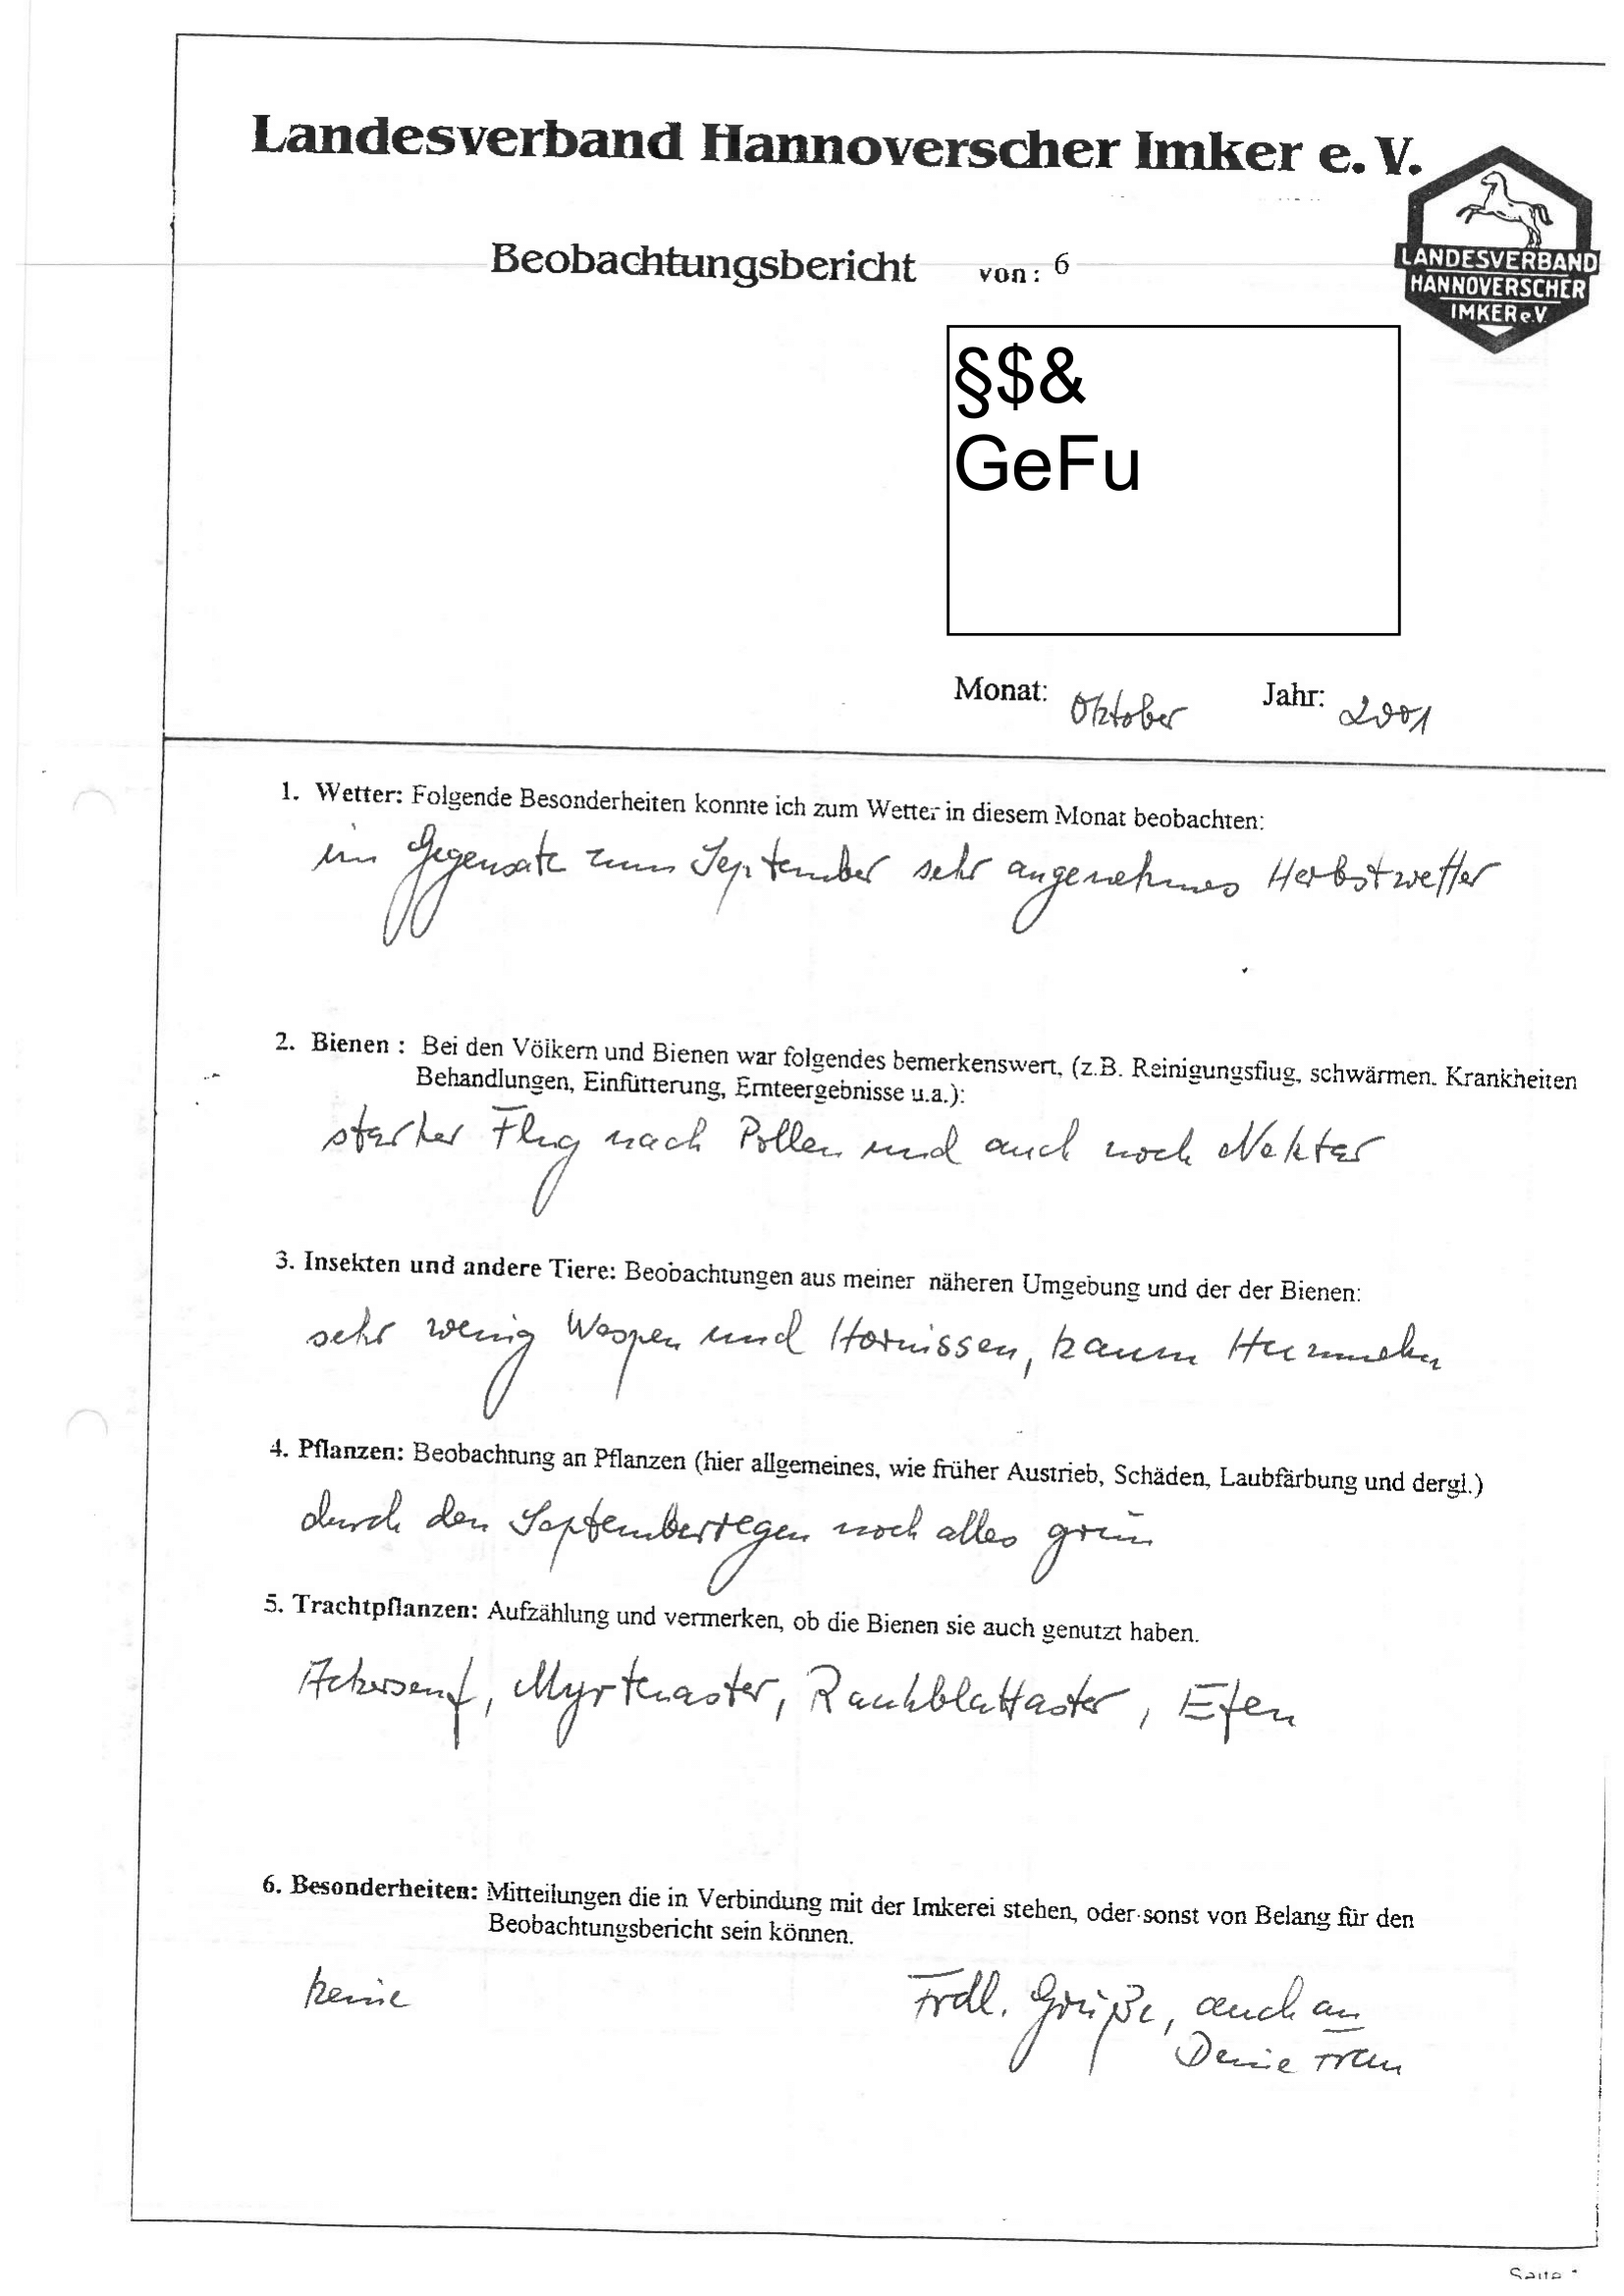 Landesverband Hannoverscher Imker e. V.
LANDESVERBAND
HANNOVERSCHER
IMKER e.V.
Beobachtungsbericht von: 6
§$&
GeFu
Monat: Oktober Jahr: 2001
1. Wetter: Folgende Besonderheiten konnte ich zum Wetter in diesem Monat beobachten:
im Gegensatz zum September sehr angenehmes Herbstwetter
2. Bienen : Bei den Völkern und Bienen war folgendes bemerkenswert, (z.B. Reinigungsflug, schwärmen. Krankheiten
Behandlungen, Einfütterung, Ernteergebnisse u.a.):
starker Flug nach Pollen und auch noch Nektar
3. Insekten und andere Tiere: Beobachtungen aus meiner näheren Umgebung und der der Bienen:
sehr wenig Wespen und Hornissen, kaum Hummeln
4. Pflanzen: Beobachtung an Pflanzen (hier allgemeines, wie früher Austrieb, Schäden, Laubfärbung und dergl.)
durch den Septemberregen noch alles grün
5. Trachtpflanzen: Aufzählung und vermerken, ob die Bienen sie auch genutzt haben.
Ackersenf, Myrtenaster, Rauhblattaster, Efeu
6. Besonderheiten: Mitteilungen die in Verbindung mit der Imkerei stehen, oder sonst von Belang für den
Beobachtungsbericht sein können.
keine
Frdl. Grüße, auch an
Deine Frau
Seite